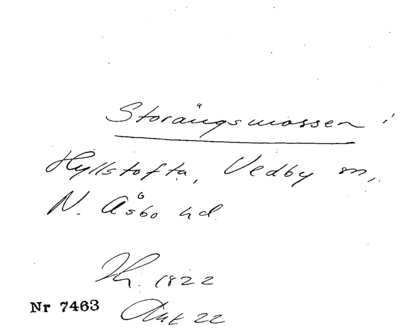 Storängsmossen i
Hyllstofta, Vedby sn,
N. Åsbo hd
1822
Nr 7463
Akt 22